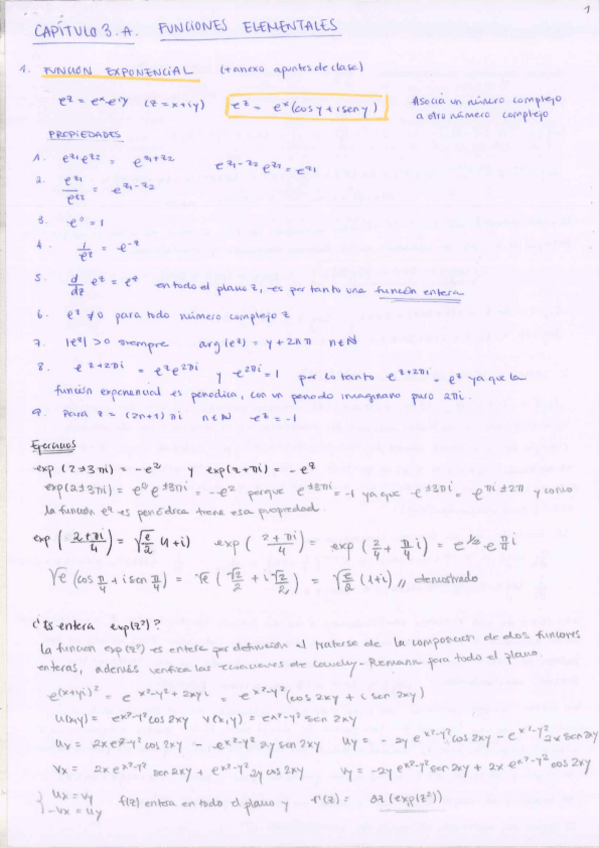 1
CAPÍTULO 3.A. FUNCIONES ELEMENTALES
1. FUNCIÓN EXPONENCIAL (+ anexo apuntes de clase)
e^z = e^x e^{iy} (z = x+iy) e^z = e^x (cos y + i sen y) Asocia un número complejo
a otro número complejo
PROPIEDADES
1. e^{z1} e^{z2} = e^{z1+z2} e^{z1-z2} e^{z2} = e^{z1}
2. e^{z1}/e^{z2} = e^{z1-z2}
3. e^0 = 1
4. 1/e^z = e^{-z}
5. d/dz e^z = e^z en todo el plano z, es por tanto una función entera
6. e^z ≠ 0 para todo número complejo z
7. |e^z| > 0 siempre arg(e^z) = y + 2nπ n∈N
8. e^{z+2πi} = e^z e^{2πi} y e^{2πi} = 1 por lo tanto e^{z+2πi} = e^z ya que la
función exponencial es periodica, con un periodo imaginario puro 2πi.
9. Para z = (2n+1)πi n∈N e^z = -1
Ejercicios
exp (2±3πi) = -e^2 y exp(z+πi) = -e^z
exp(2±3πi) = e^2 e^{±3πi} = -e^2 porque e^{±3πi} = -1 ya que e^{±3πi} = e^{πi ± 2π} y como
la función e^z es periódica tiene esa propiedad.
exp ( (2+πi)/4 ) = √(e/2) (1+i) exp ( (2+πi)/4 ) = exp ( 2/4 + π/4 i ) = e^{1/2} e^{π/4 i}
√e (cos π/4 + i sen π/4) = √e ( √2/2 + i √2/2 ) = √(e/2) (1+i) // demostrado
¿Es entera exp(z²)?
La función exp(z²) es entera por definición al tratarse de la composición de dos funciones
enteras, además verifica las ecuaciones de Cauchy-Riemann para todo el plano.
e^{(x+yi)²} = e^{x²-y²+2xyi} e^{x²-y²} (cos 2xy + i sen 2xy)
u(x,y) = e^{x²-y²} cos 2xy v(x,y) = e^{x²-y²} sen 2xy
ux = 2x e^{x²-y²} cos 2xy - e^{x²-y²} 2y sen 2xy uy = -2y e^{x²-y²} cos 2xy - e^{x²-y²} 2x sen 2xy
vx = 2x e^{x²-y²} sen 2xy + e^{x²-y²} 2y cos 2xy vy = -2y e^{x²-y²} sen 2xy + 2x e^{x²-y²} cos 2xy
{ ux = vy
-vx = uy f(z) entera en todo el plano y f'(z) = 2z (exp(z²))